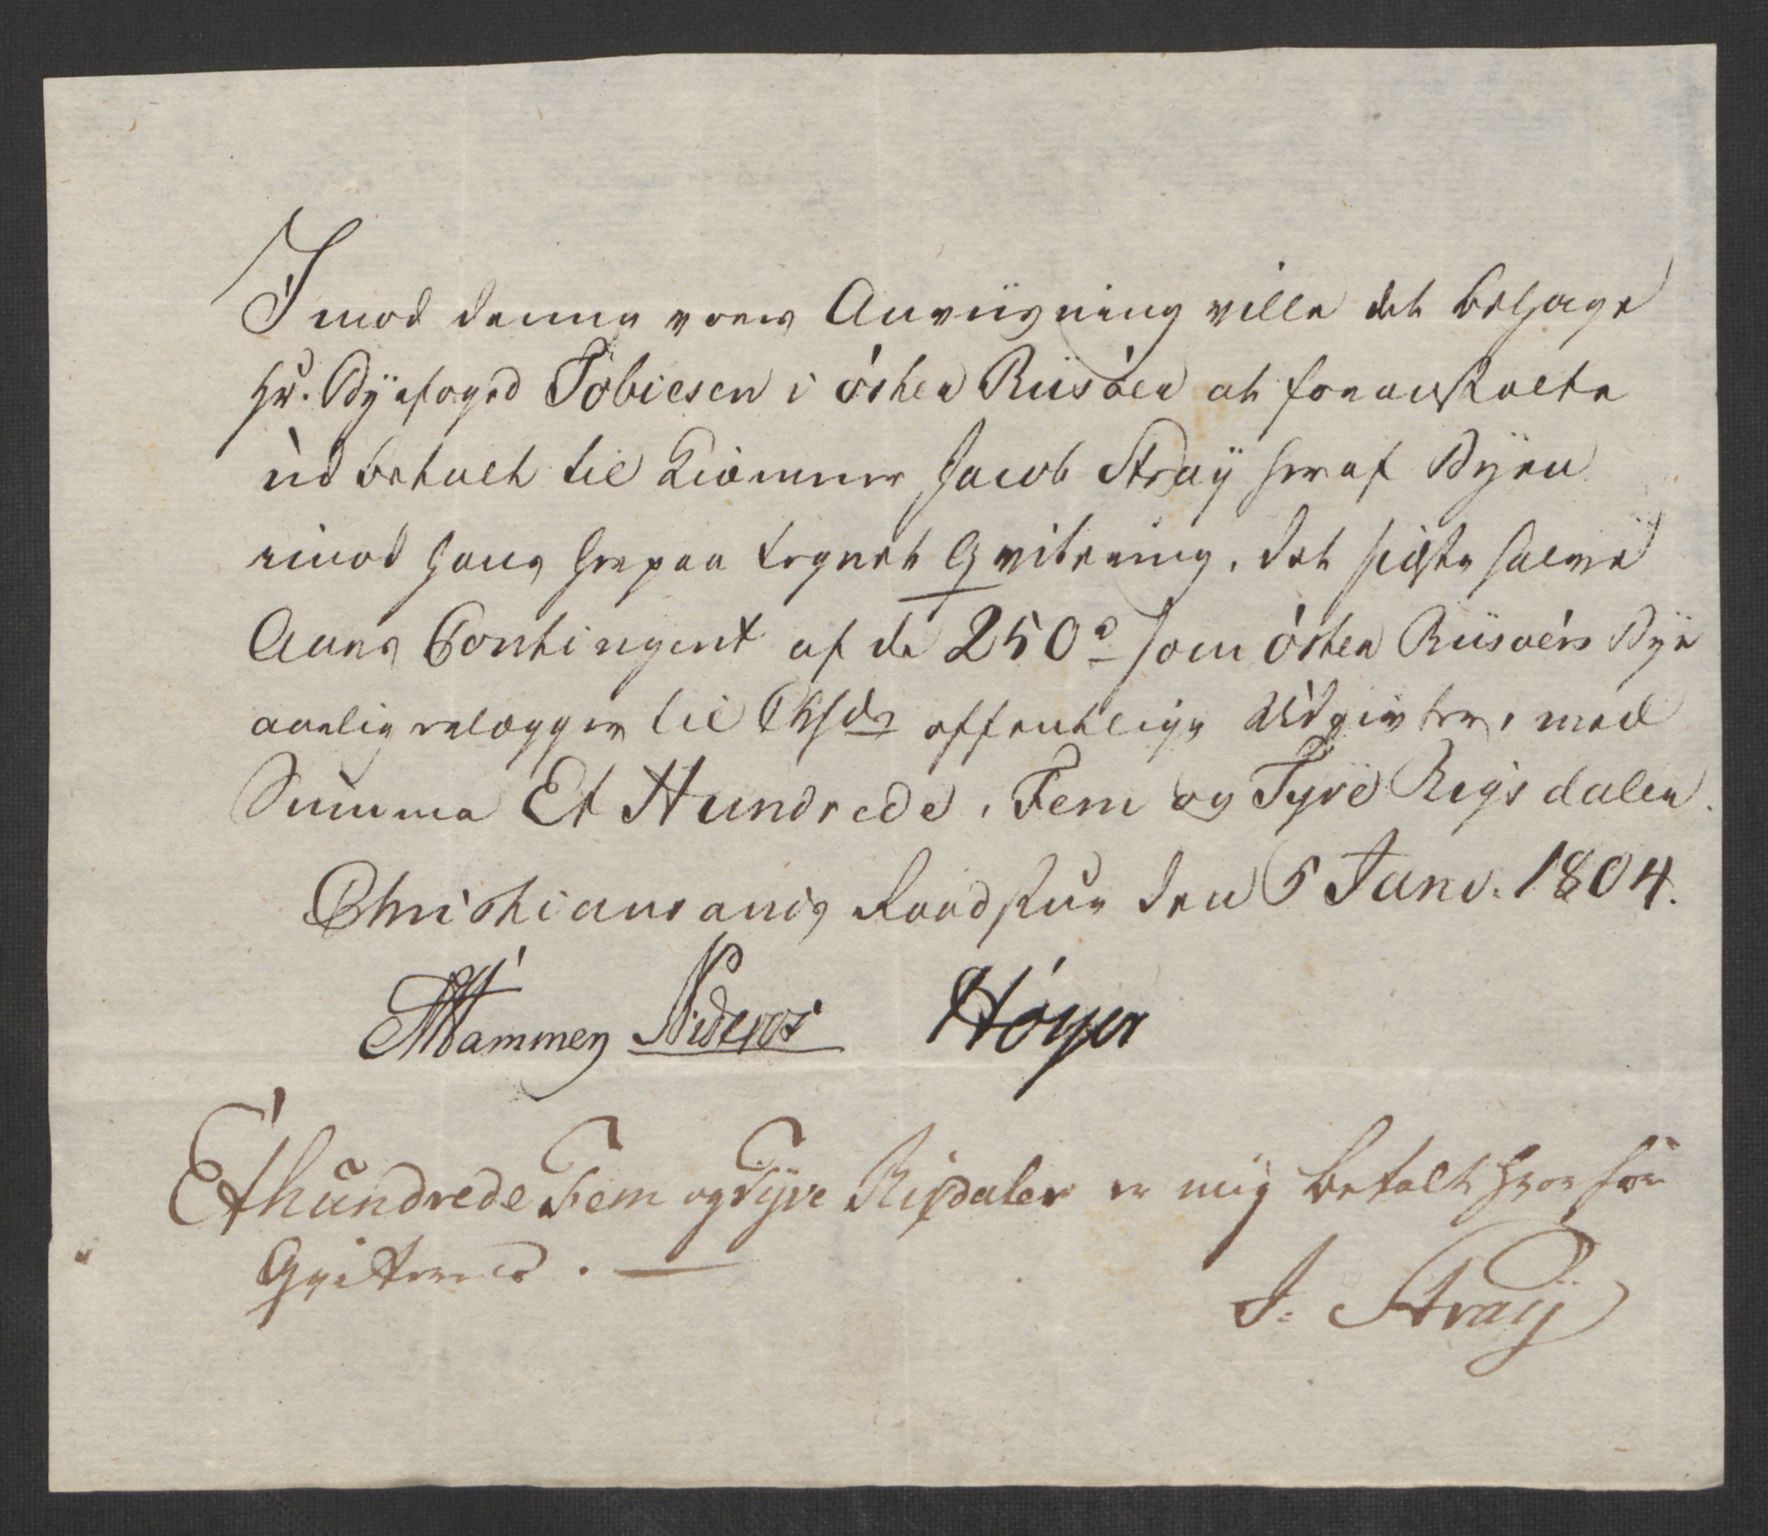 Imod denne vores Anviisning ville det behage
Hr. Byefoged Tobiesen i Øster Riisöer at foranstalte
udbetalt til Kiømner Jacob Straÿ her af Byen
imod hans herpaa tegnet Qvitering, det sidste halve
Aars Contingent af de 250 som Øster Riisöers Bye
aarlig erlægger til offentlige Udgivter, med
Summa Et Hundrede, Fem og Tyve Rigsdaler.
Christiansands Raadstue den 5 Janv. 1804.
Mammen Höyer
Et hundrede Fem og Tyve Rixdaler er mig betalt hvorfor
Qviteres.
J: Straÿ